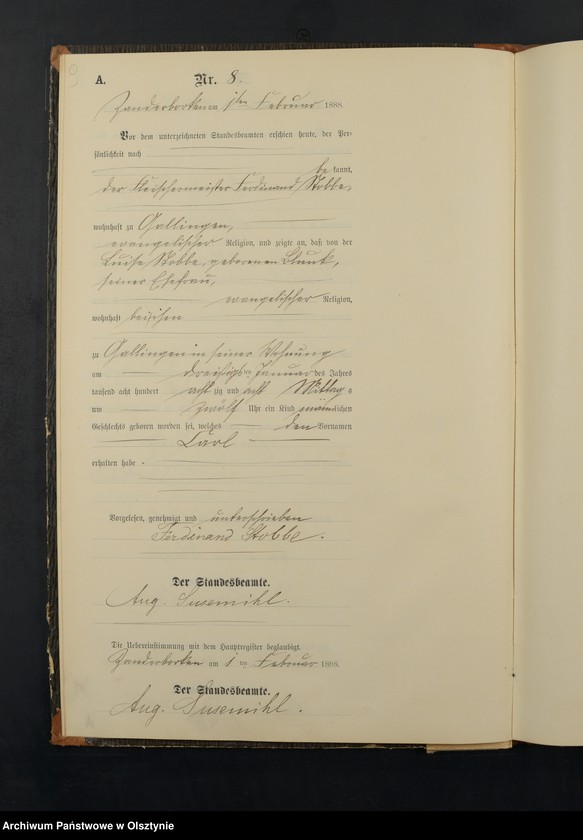 A. Nr. 8.
Zanderborken am 1ten Februar 1888.
Vor dem unterzeichneten Standesbeamten erschien heute, der Per-
sönlichkeit nach
be kannt,
der Fleischermeister Ferdinand Stobbe,
wohnhaft zu Gallingen,
evangelischer Religion, und zeigte an, daß von der
Luise Stobbe, geborenen Blunk,
seiner Ehefrau,
evangelischer Religion,
wohnhaft bei ihm
zu Gallingen in seiner Wohnung
am dreißigsten Januar des Jahres
tausend acht hundert acht zig und acht Mittag s
um zwölf Uhr ein Kind männlichen
Geschlechts geboren worden sei, welches den Vornamen
Carl
erhalten habe.
Vorgelesen, genehmigt und unterschrieben
Ferdinand Stobbe.
Der Standesbeamte.
Aug. Susemihl.
Die Uebereinstimmung mit dem Hauptregister beglaubigt.
Zanderborken am 1 ten Februar 1888.
Der Standesbeamte.
Aug. Susemihl.
Archiwum Państwowe w Olsztynie